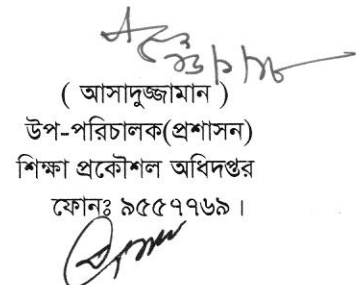 ( আসাদুজ্জামান )
উপ-পরিচালক(প্রশাসন)
শিক্ষা প্রকৌশল অধিদপ্তর
ফোনঃ ৯৫৫৭৭৬৯।